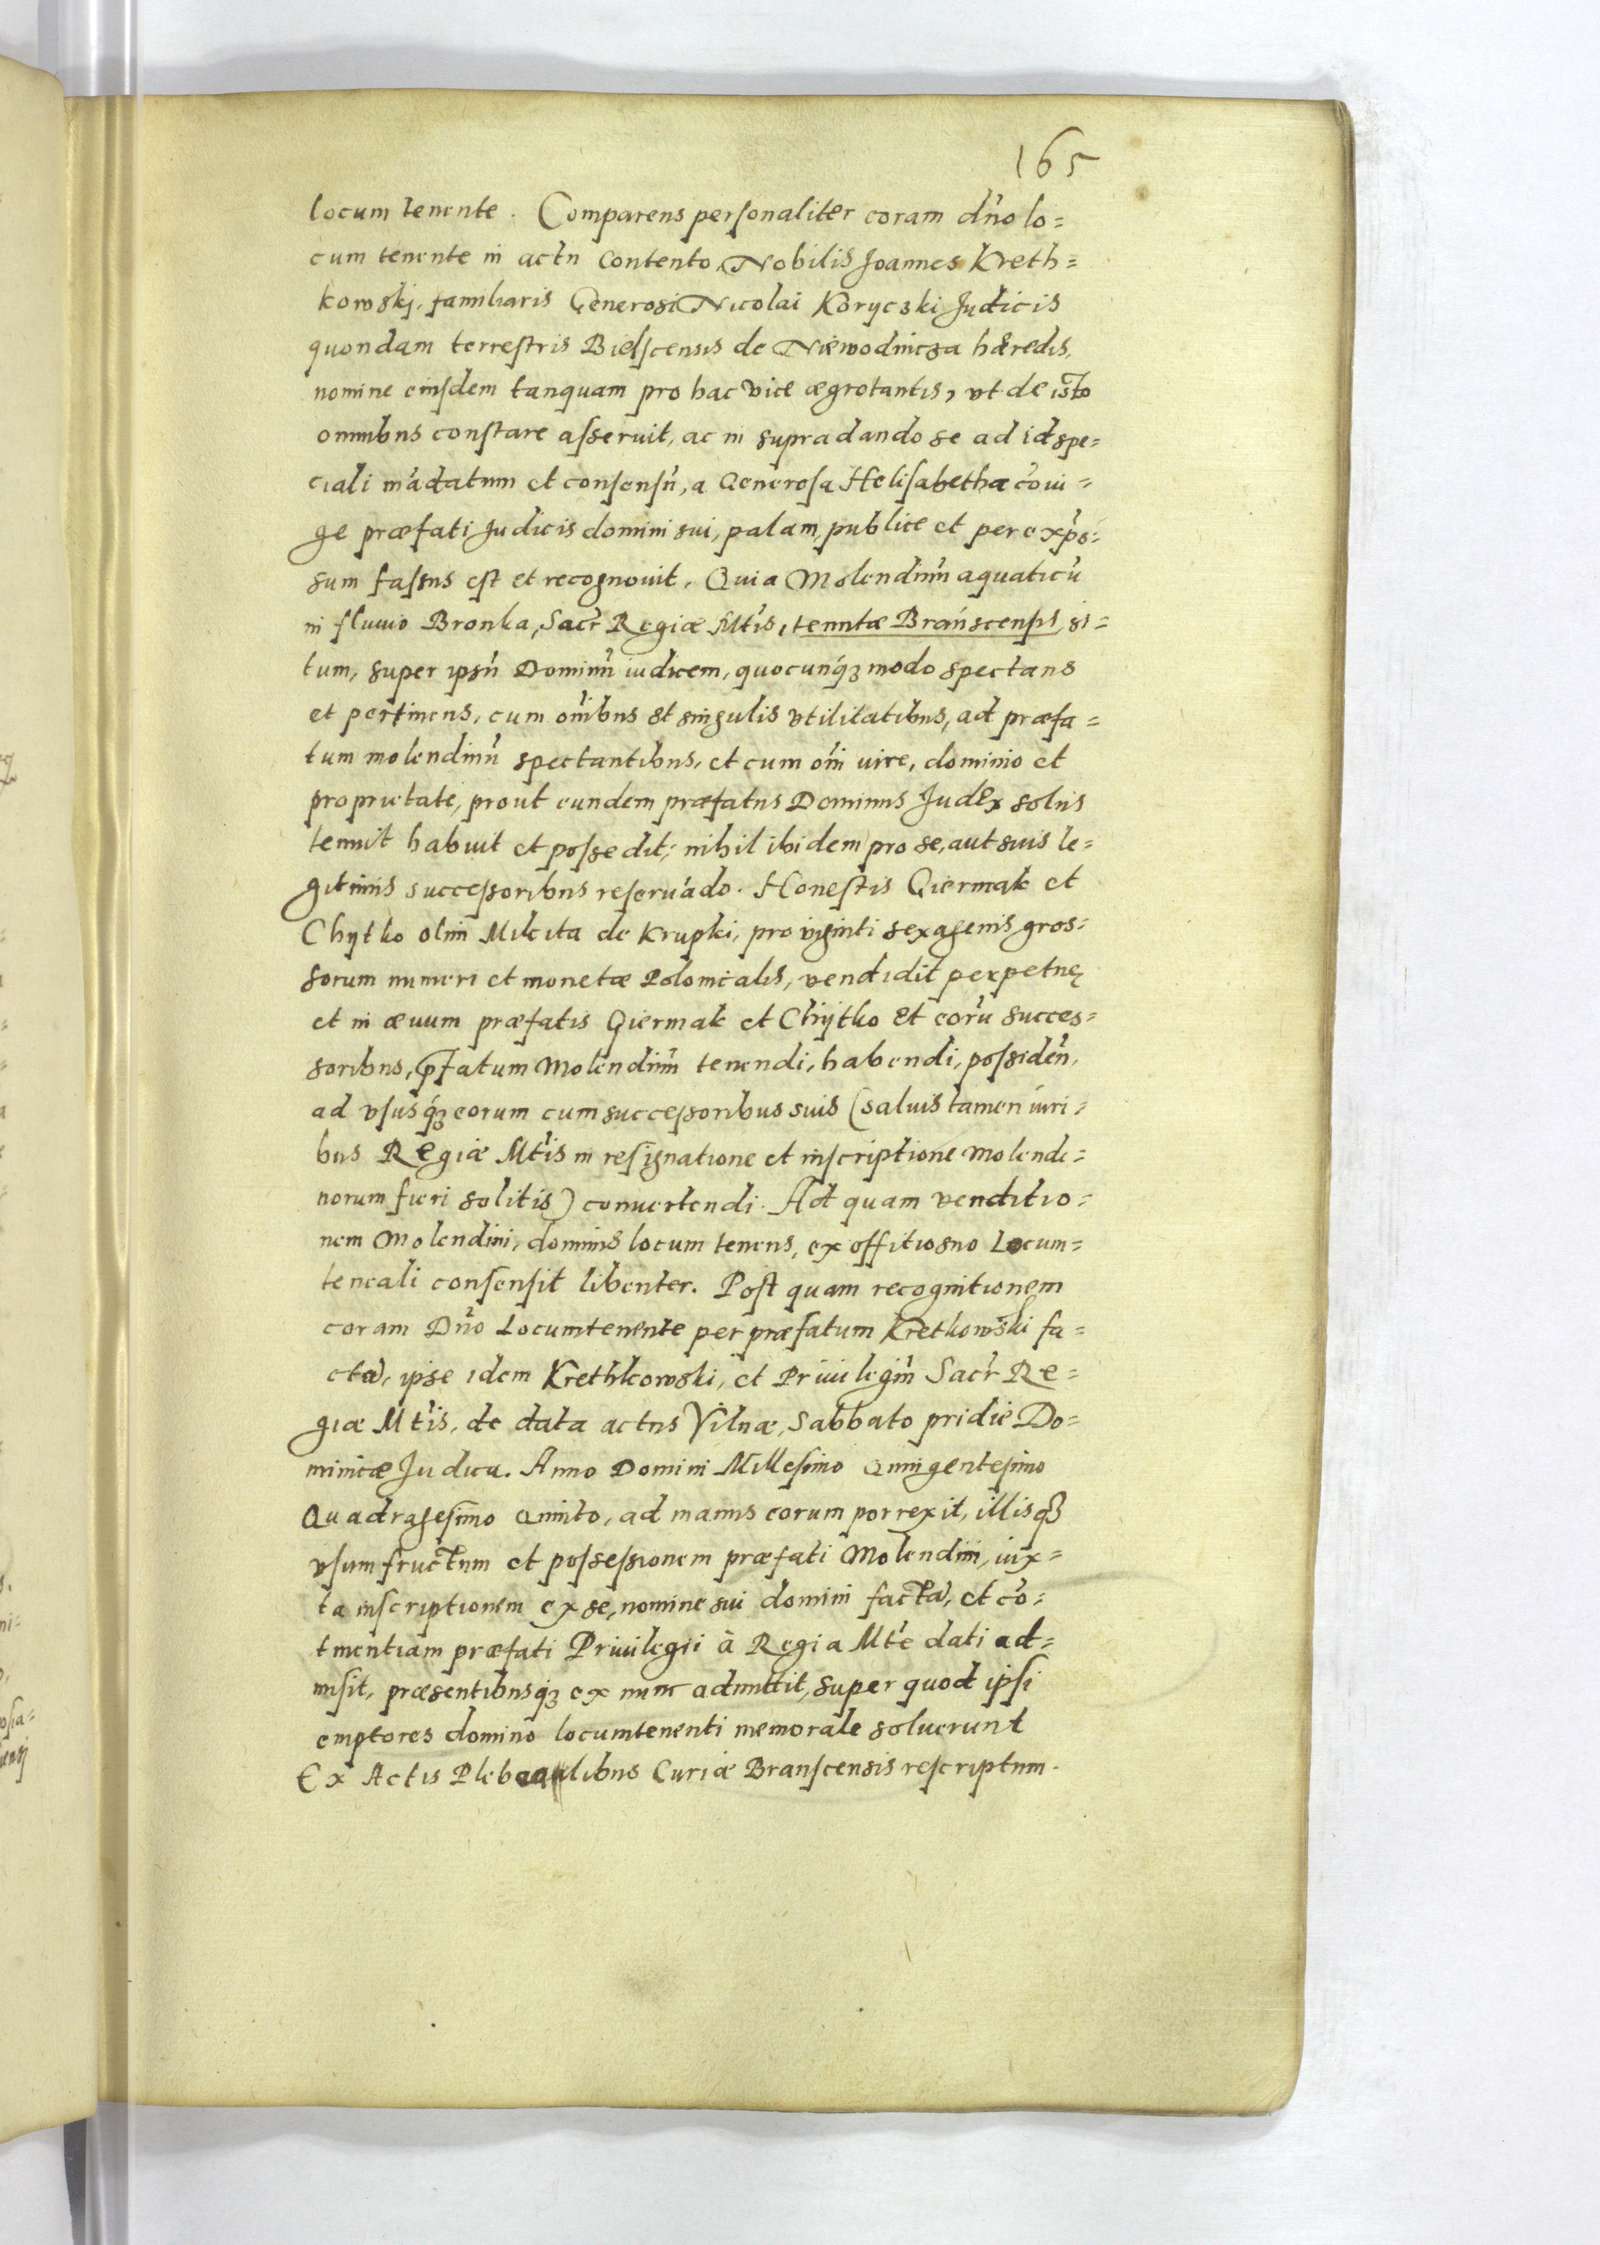 165
locum tenente. Comparens personaliter coram dño lo=
cum tenente in actu contento, Nobilis Joannes Kreth=
kowskj, familiaris Generosi Nicolai Koryczki Judicis
quondam terrestris Bielscensis de Niewodnicza hæredis,
nomine eiusdem tanquam pro hac vice ægrotantis, vt de isto
omnibus constare asseruit, ac in supra dando se ad id spe=
ciali mãdatum et consensũ, a Generosa Helisabetha cõiu=
ge præfati Judicis domini sui, palam, publice et per expĩs=
sum fassus est et recognouit. Quia Molendinũ aquaticũ
in fluuio Bronka, Sacr̃ Regiæ Mtĩs, tenutæ Brańscensis, si=
tum, super ipsũ Dominũ iudicem, quocunq̃ȝ modo spectans
et pertinens, cum oñibus et singulis vtilitatibus, ad præfa=
tum molendinũ spectantibus, et cum oñi iure, dominio et
proprietate, prout eundem præfatus Dominus Judex solus
tenuit habuit et possedit; nihil ibidem pro se, aut suis le=
gitimis successoribus reseruãdo. Honestis Giermak et
Chytko olim Mileita de Krupki, pro viginti sexagenis gros=
sorum numeri et monetæ Polonicalis, vendidit perpetuę
et in æuum præfatis Giermak et Chytko et eorũ succes=
soribus, p̃fatum Molendinũ tenendi, habendi, possideñ,
ad vsusq̃ȝ eorum cum successoribus suis (saluis tamen iuri=
bus Regiæ Mtĩs in resignatione et inscriptione molendi=
norum fieri solitis) conuertendi. Ad quam venditio=
nem Molendini, dominus locum tenens, ex offitio suo Locum=
teneali consensit libenter. Post quam recognitionem
coram Dño Locumtenente per præfatum Kretkowski fa=
ctã, ipse idem Krethkowski, et Priuilegiũ Sacr̃ Re=
giæ Mtĩs, de data actus Vilnæ, Sabbato pridie Do=
minicæ Judica. Anno Domini Millesimo Quingentesimo
Quadragesimo Quinto, ad manus eorum porrexit, illisq̃ȝ
vsumfructum et possessionem præfati Molendini, iux=
ta inscriptionem ex se, nomine sui domini factã, et cõ=
tinentiam præfati Priuilegii à Regia Mte dati ad=
misit, præsentibusq̃ȝ ex nunc admittit, super quod ipsi
emptores domino locumtenenti memorale soluerunt
Ex Actis Plebealibus Curiæ Branscensis rescriptum.